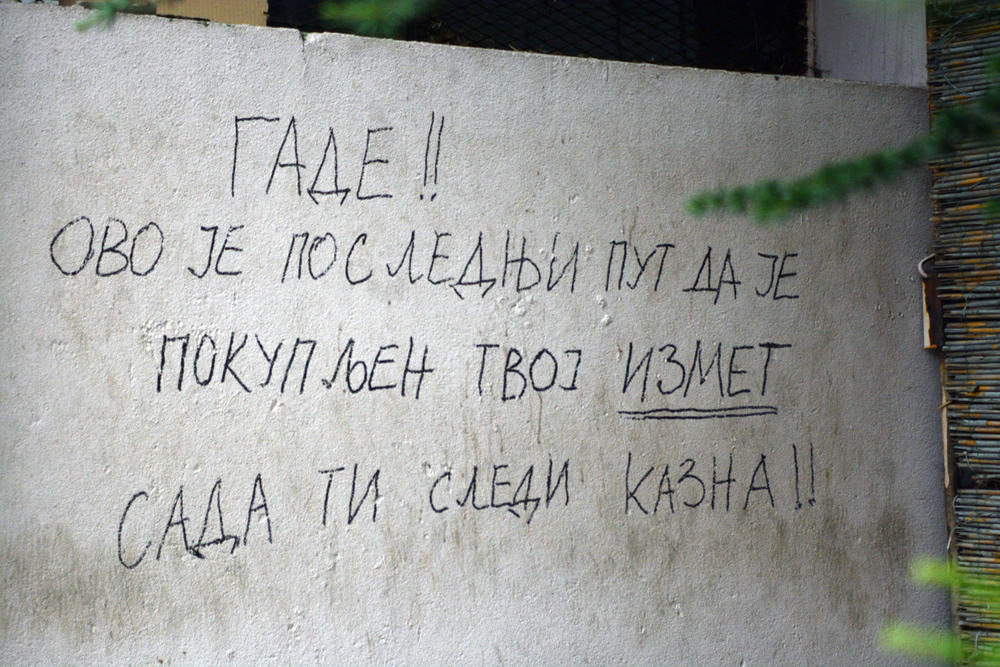 ГАДЕ!!
ОВО ЈЕ ПОСЛЕДЊИ ПУТ ДА ЈЕ
ПОКУПЉЕН ТВОЈ ИЗМЕТ
САДА ТИ СЛЕДИ КАЗНА!!